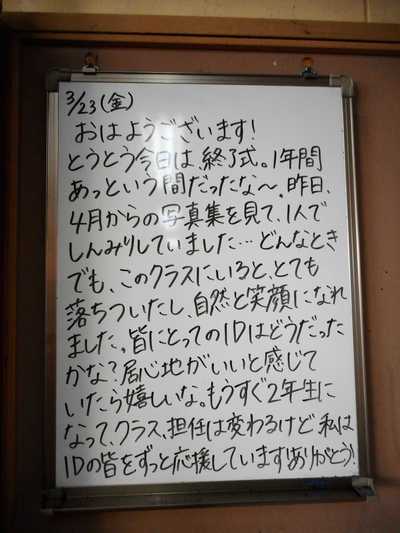 3/23(金)
おはようございます!
とうとう今日は、終了式。1年間
あっという間だったな〜。昨日、
4月からの写真集を見て、1人で
しんみりしていました…どんなとき
でも、このクラスにいると、とても
落ちついたし、自然と笑顔になれ
ました。皆にとっての1Dはどうだった
かな?居心地がいいと感じて
いたら嬉しいな。もうすぐ2年生に
なって、クラス、担任は変わるけど、私は
1Dの皆をずっと応援しています!ありがとう!